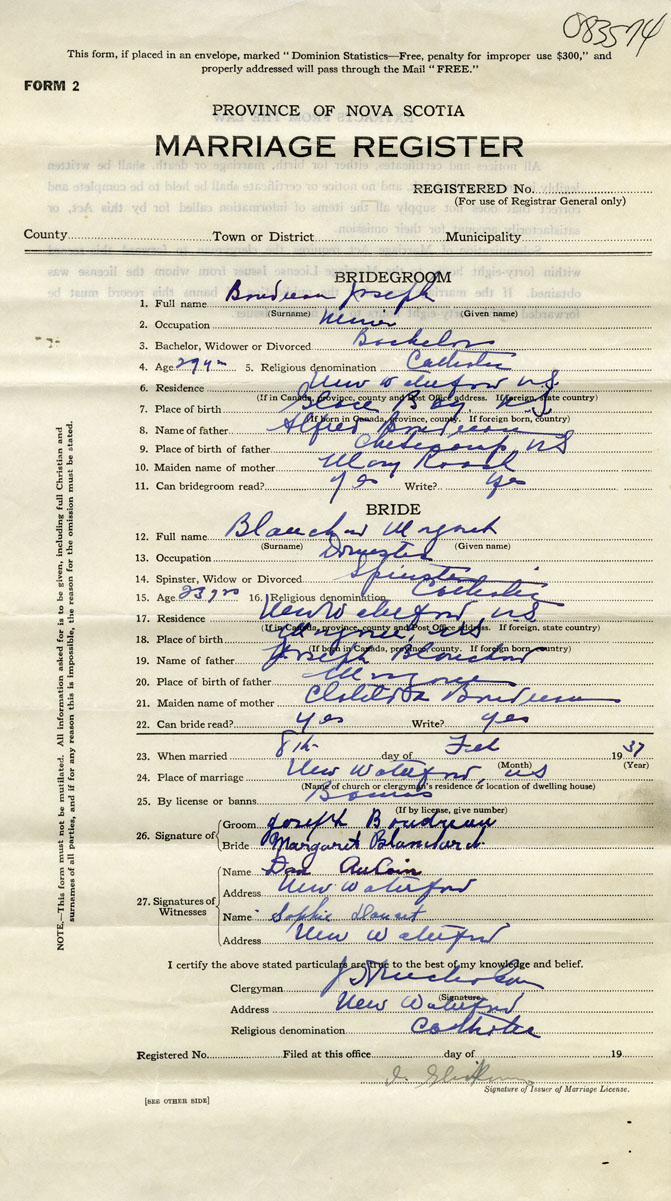 083574
This form, if placed in an envelope, marked "Dominion Statistics—Free, penalty for improper use $300," and
properly addressed will pass through the Mail "FREE."
FORM 2
PROVINCE OF NOVA SCOTIA
MARRIAGE REGISTER
REGISTERED No.
(For use of Registrar General only)
County Town or District Municipality
BRIDEGROOM
1. Full name Boudreau Joseph
(Surname) (Given name)
2. Occupation Miner
3. Bachelor, Widower or Divorced Bachelor
4. Age 29 yrs 5. Religious denomination Catholic
6. Residence New Waterford N.S.
(If in Canada, province, county and Post Office address. If foreign, state country)
7. Place of birth Glace Bay, N.S.
(If born in Canada, province, county. If foreign born, country)
8. Name of father Alfred Boudreau
9. Place of birth of father Cheticamp, NS
10. Maiden name of mother Mary Roach
11. Can bridegroom read? yes Write? yes
BRIDE
12. Full name Blanchard Margaret
(Surname) (Given name)
13. Occupation Domestic
14. Spinster, Widow or Divorced Spinster
15. Age 23 yrs 16. Religious denomination Catholic
17. Residence New Waterford, NS
(If in Canada, province, county and Post Office address. If foreign, state country)
18. Place of birth Margaree, NS
(If born in Canada, province, county. If foreign born, country)
19. Name of father Joseph Blanchard
20. Place of birth of father Margaree
21. Maiden name of mother Boudreau
22. Can bride read? yes Write? yes
23. When married 8th day of Feb 1937
(Month) (Year)
24. Place of marriage New Waterford, NS
(Name of church or clergyman's residence or location of dwelling house)
25. By license or banns Banns
(If by license, give number)
26. Signature of
Groom Joseph Boudreau
Bride Margaret Blanchard
27. Signatures of Witnesses
Name Dan AuCoin
Address New Waterford
Name Sophie
Address New Waterford
I certify the above stated particulars are true to the best of my knowledge and belief.
Clergyman
(Signature)
Address New Waterford
Religious denomination Catholic
Registered No. Filed at this office day of 19
Signature of Issuer of Marriage License.
[SEE OTHER SIDE]
NOTE.—This form must not be mutilated. All information asked for is to be given, including full Christian and
surnames of all parties, and if for any reason this is impossible, the reason for the omission must be stated.